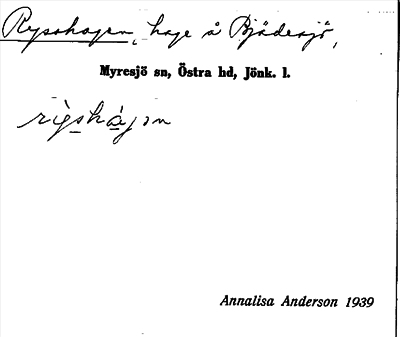 Rysshagen, hage å Bjädesjö,
Myresjö sn, Östra hd, Jönk. l.
Annalisa Anderson 1939